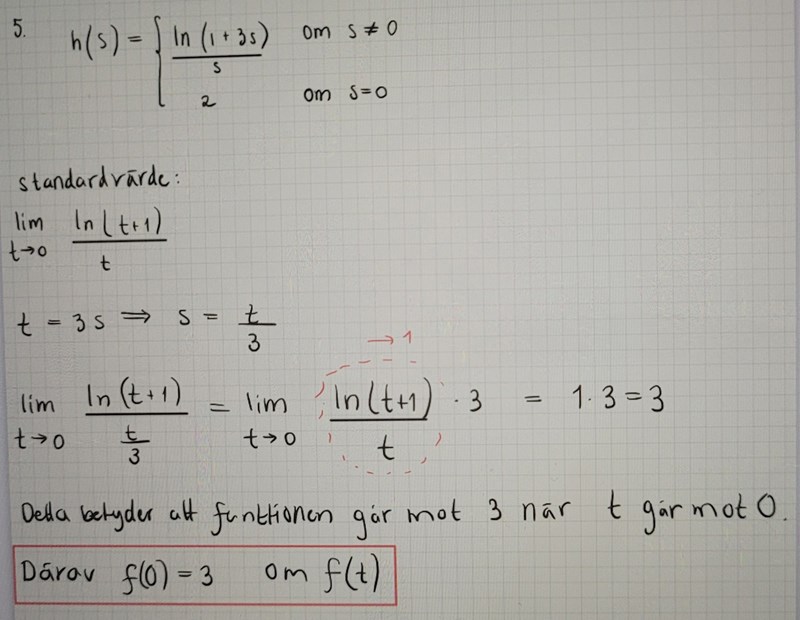 5. h(s) = { ln (1 + 3s) / s om s ≠ 0
2 om s=0
standardvärde:
lim t→0 ln(t+1) / t
t = 3s ⟹ s = t/3
→ 1
lim t→0 ln(t+1) / (t/3) = lim t→0 ln(t+1) / t · 3 = 1·3 = 3
Detta betyder att funktionen går mot 3 när t går mot 0.
Därav f(0) = 3 om f(t)